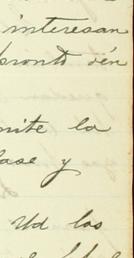 interesan
pronto den
mite la
lase y
Ud las